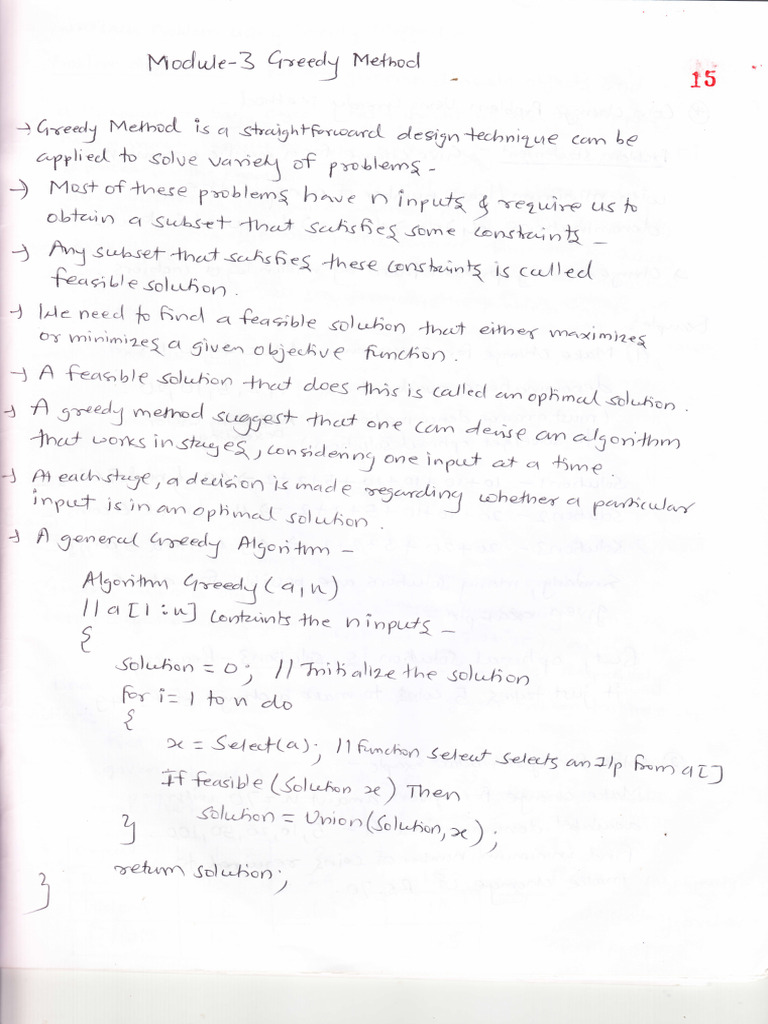 Module-3 Greedy Method
15
→ Greedy Method is a straightforward design technique can be
applied to solve variety of problems -
→ Most of these problems have n inputs & require us to
obtain a subset that satisfies some constraints -
→ Any subset that satisfies these constraints is called
feasible solution.
→ We need to find a feasible solution that either maximizes
or minimizes a given objective function.
→ A feasible solution that does this is called an optimal solution.
→ A greedy method suggest that one can devise an algorithm
that works in stages, considering one input at a time.
→ At each stage, a decision is made regarding whether a particular
input is in an optimal solution.
→ A general Greedy Algorithm -
Algorithm Greedy (a,n)
// a[1:n] containts the n inputs -
{
solution = 0; // Initialize the solution
for i= 1 to n do
{
x = Select(a); // function select selects an I/p from a[]
If feasible (Solution x) Then
solution = Union(Solution, x);
}
return solution;
}